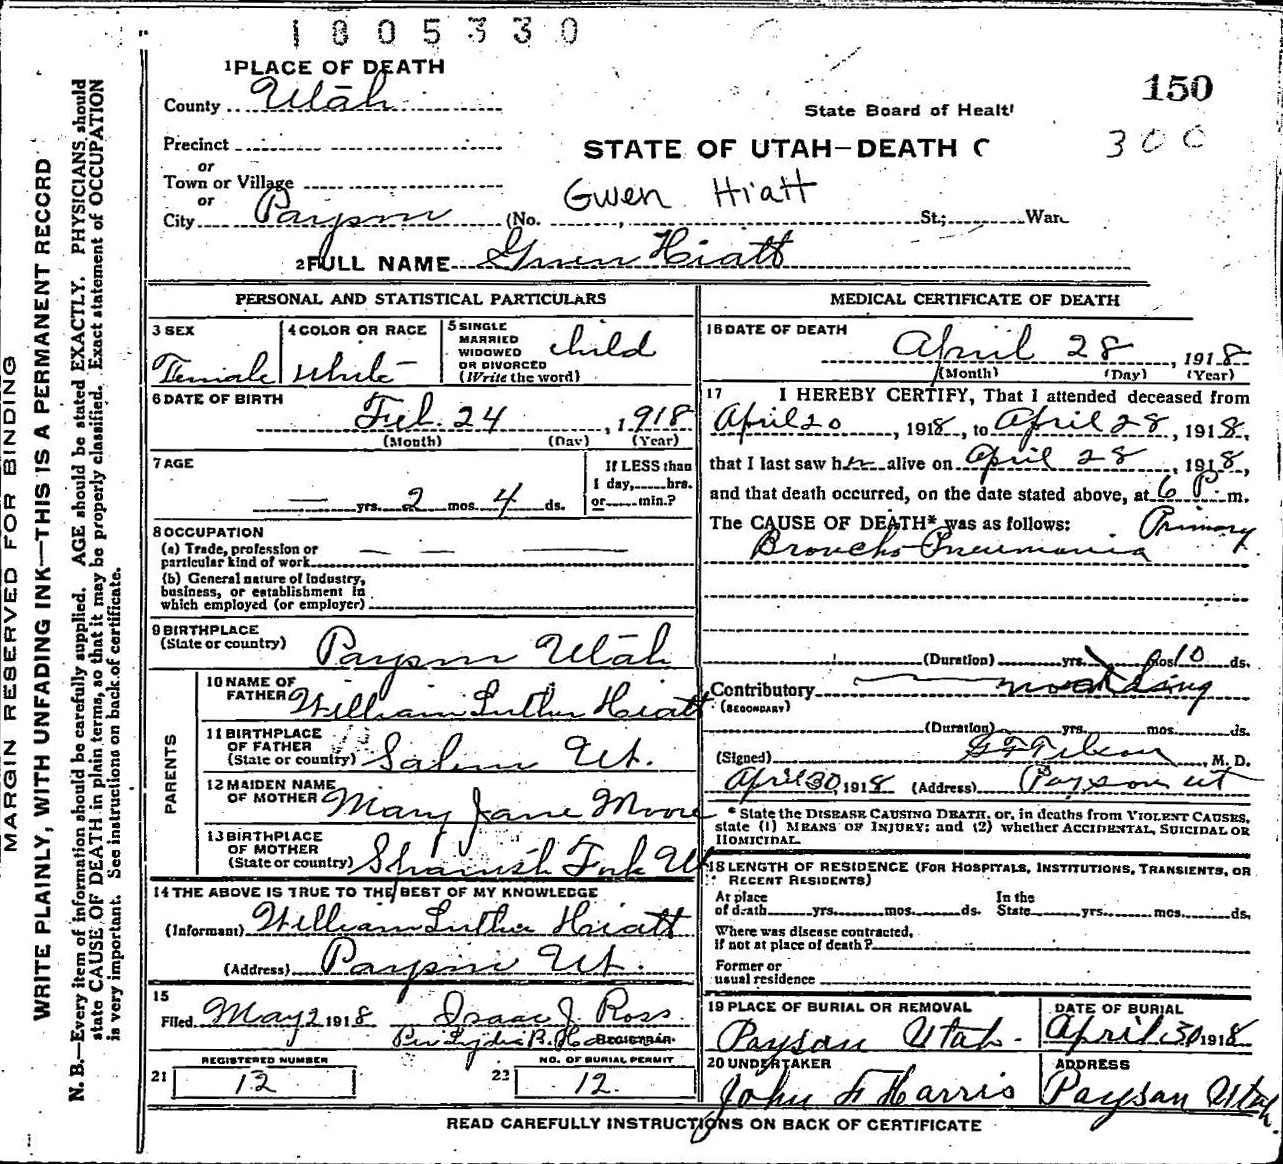 1805330
1 PLACE OF DEATH
County Utah
150
State Board of Healt
Precinct
STATE OF UTAH—DEATH C
300
or
Town or Village
Gwen Hiatt
or
City Payson (No. St.; War
2 FULL NAME Gwen Hiatt
PERSONAL AND STATISTICAL PARTICULARS
3 SEX Female
4 COLOR OR RACE White
5 SINGLE MARRIED WIDOWED OR DIVORCED (Write the word) Child
6 DATE OF BIRTH
Feb. 24, 1918
(Month) (Day) (Year)
7 AGE
— yrs. 2 mos. 4 ds.
If LESS than
1 day, hrs.
or min.?
8 OCCUPATION
(a) Trade, profession or
particular kind of work
(b) General nature of industry,
business, or establishment in
which employed (or employer)
9 BIRTHPLACE
(State or country) Payson Utah
PARENTS
10 NAME OF
FATHER William Luther Hiatt
11 BIRTHPLACE
OF FATHER
(State or country) Salem Ut.
12 MAIDEN NAME
OF MOTHER Mary Jane Moore
13 BIRTHPLACE
OF MOTHER
(State or country) Spanish Fork Ut
14 THE ABOVE IS TRUE TO THE BEST OF MY KNOWLEDGE
(Informant) William Luther Hiatt
(Address) Payson Ut.
15
Filed May 2 1918 Isaac J. Ross
Per Lydia B. REGISTRAR
REGISTERED NUMBER
21 12
NO. OF BURIAL PERMIT
22 12.
MEDICAL CERTIFICATE OF DEATH
16 DATE OF DEATH
April 28, 1918
(Month) (Day) (Year)
17 I HEREBY CERTIFY, That I attended deceased from
April 20, 1918, to April 28, 1918,
that I last saw her alive on April 28, 1918,
and that death occurred, on the date stated above, at 6 P. m.
The CAUSE OF DEATH* was as follows: Primary
Broncho Pneumonia
(Duration) yrs. mos. 10 ds.
Contributory
(SECONDARY)
(Duration) yrs. mos. ds.
(Signed) M. D.
April 30, 1918 (Address) Payson Ut
* State the DISEASE CAUSING DEATH, or, in deaths from VIOLENT CAUSES,
state (1) MEANS OF INJURY; and (2) whether ACCIDENTAL, SUICIDAL OR
HOMICIDAL.
18 LENGTH OF RESIDENCE (FOR HOSPITALS, INSTITUTIONS, TRANSIENTS, OR
RECENT RESIDENTS)
At place
of death yrs. mos. ds.
In the
State yrs. mos. ds.
Where was disease contracted,
If not at place of death?
Former or
usual residence
19 PLACE OF BURIAL OR REMOVAL
Payson Utah.
DATE OF BURIAL
April 30 1918
20 UNDERTAKER
John F Harris
ADDRESS
Payson Utah.
READ CAREFULLY INSTRUCTIONS ON BACK OF CERTIFICATE
MARGIN RESERVED FOR BINDING
WRITE PLAINLY, WITH UNFADING INK—THIS IS A PERMANENT RECORD
N. B.—Every item of information should be carefully supplied. AGE should be stated EXACTLY. PHYSICIANS should
state CAUSE OF DEATH in plain terms, so that it may be properly classified. Exact statement of OCCUPATION
is very important. See instructions on back of certificate.